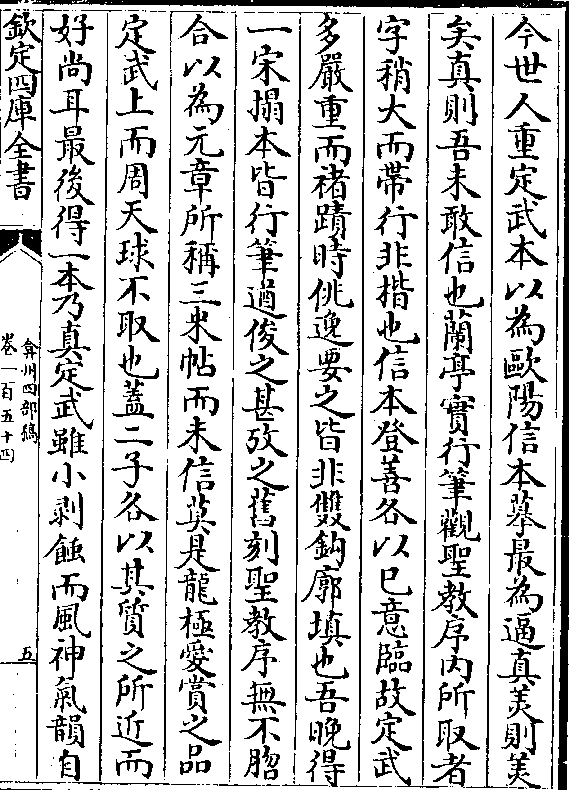 今世人重定武本以為歐陽信本摹最為逼真美則美
矣真則吾未敢信也蘭亭實行筆觀聖教序内所取者
字稍大而帶行非楷也信本登善各以已意臨故定武
多嚴重而褚蹟時佻逸要之皆非雙鈎廓填也吾晚得
一宋搨本皆行筆遒俊之甚攷之舊刻聖教序無不脗
合以為元章所稱三米帖而未信莫是龍極愛賞之品
定武上而周天球不取也蓋二子各以其質之所近而
好尚耳最後得一本乃真定武雖小剥蝕而風神氣韻自
欽定四庫全書
弇州四部稿
卷一百五十四
五